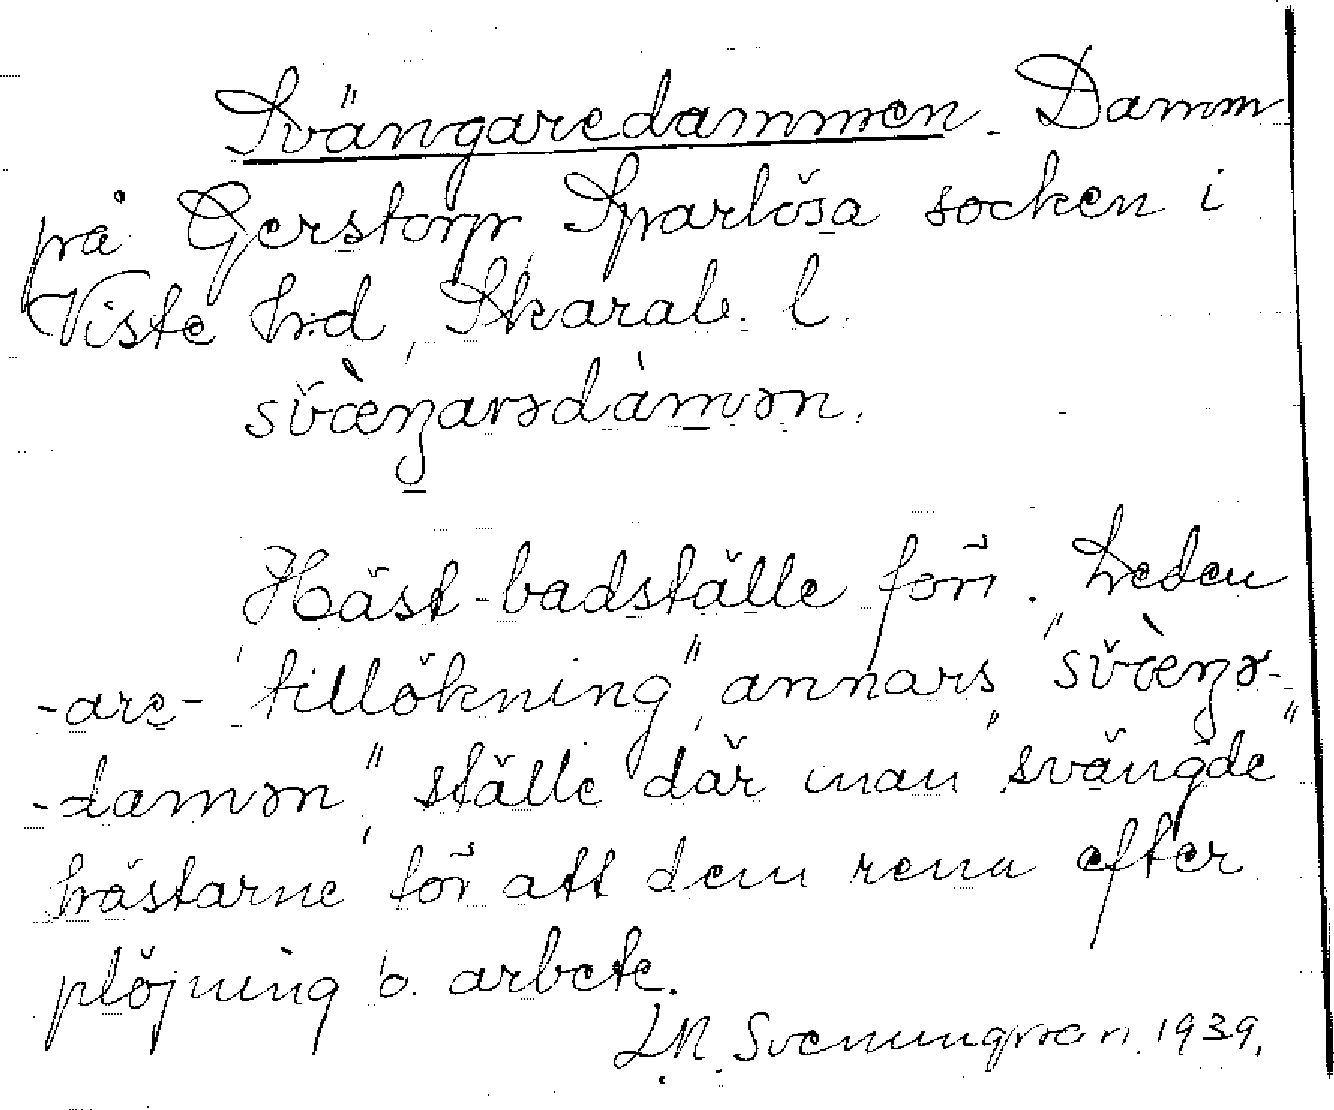 Svängaredammen. Damm
på Gerstorp, Sparlösa socken i
Viste hrd, Skarab. l.
svæŋarədàmən.
Häst-badställe förr. Leden
-are- "tillökning", annars "svæŋə-
-damən", ställe där man "svängde"
hästarne för att dem rena efter
plöjning o. arbete.
L.N. Svenungsson. 1939.